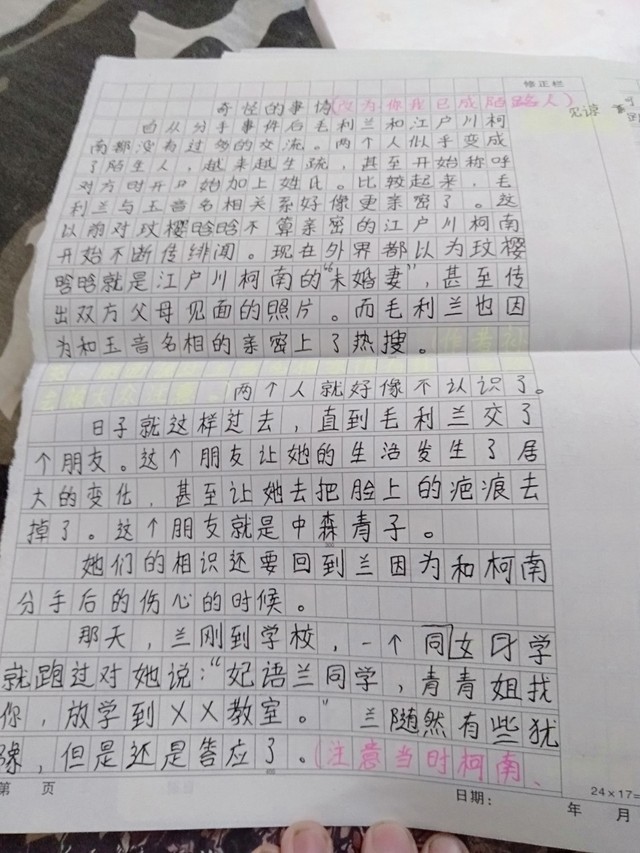 修正栏
奇怪的事情(改为你我已成陌路人)
见谅
自从分手事件后毛利兰和江户川柯
南都没有过多的交流。两个人似乎变成
了陌生人，越来越生疏，甚至开始称呼
对方时开始加上姓氏。比较起来，毛
利兰与玉音名相关系好像更亲密了。这
以前对玟樱晗晗不算亲密的江户川柯南
开始不断传绯闻。现在外界都以为玟樱
晗晗就是江户川柯南的“未婚妻”，甚至传
出双方父母见面的照片。而毛利兰也因
为和玉音名相的亲密上了热搜。
两个人就好像不认识了。
日子就这样过去，直到毛利兰交了
个朋友。这个朋友让她的生活发生了居
大的变化，甚至让她去把脸上的疤痕去
掉了。这个朋友就是中森青子。
她们的相识还要回到兰因为和柯南
分手后的伤心的时候。
那天，兰刚到学校，一个同女学
就跑过对她说：“妃语兰同学，青青姐找
你，放学到XX教室。”兰随然有些犹
豫，但是还是答应了。(注意当时柯南、
第 页
日期： 年 月
24×17=